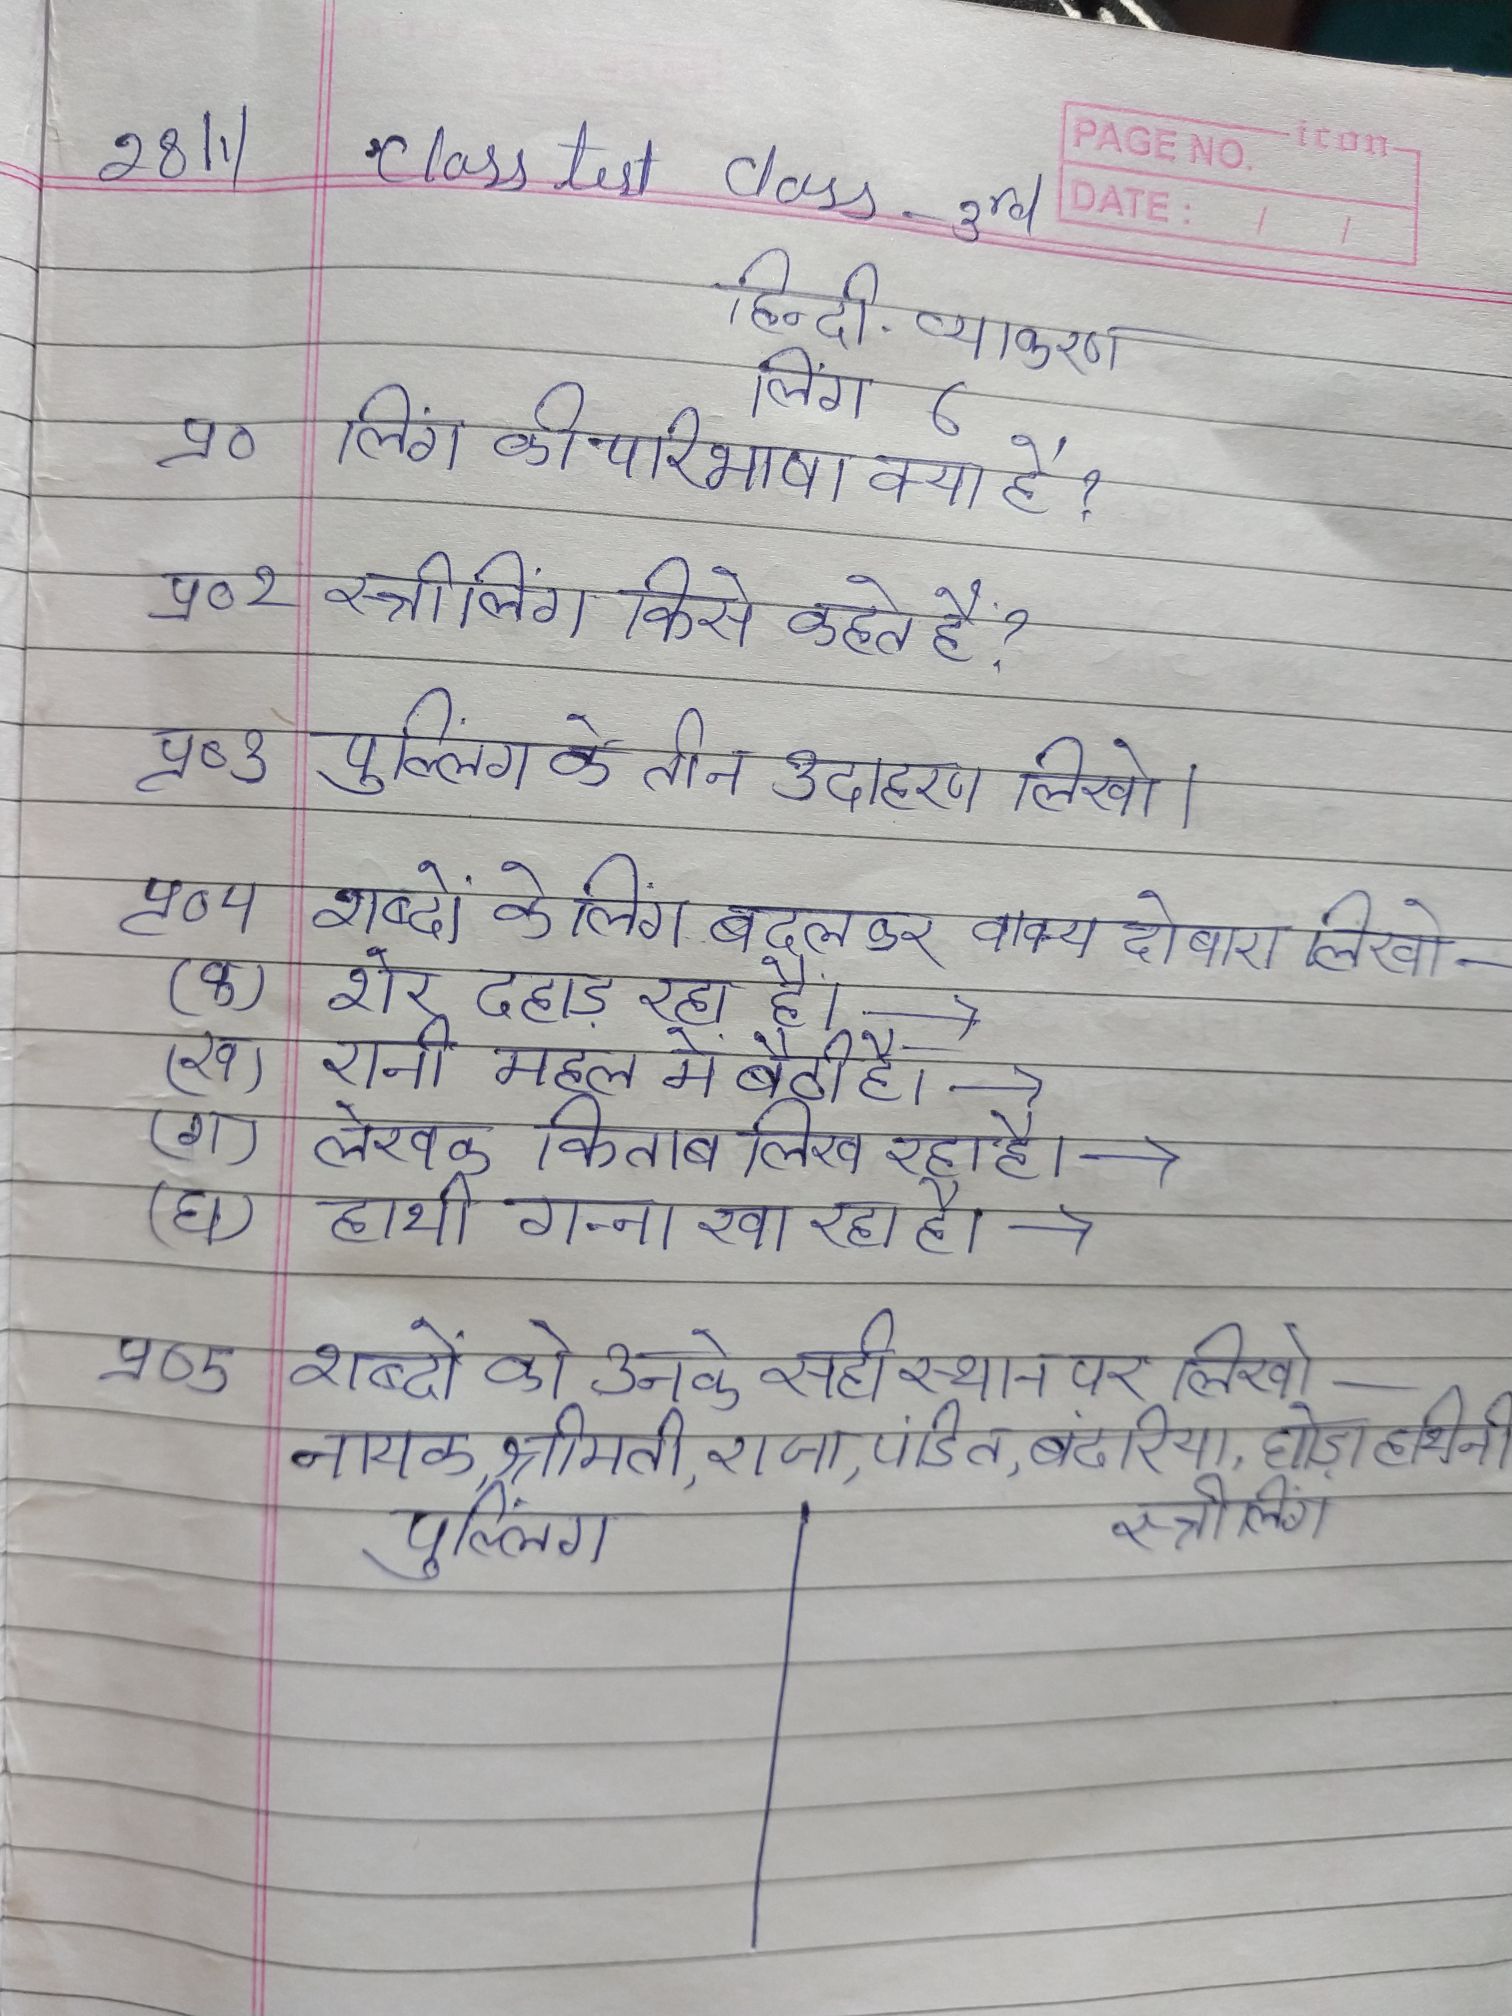 28/1/ Class test Class - 3rd
icon
PAGE NO.
DATE : / /
हिन्दी. व्याकरण
लिंग 6
प्र० लिंग की परिभाषा क्या है?
प्र०२ स्त्रीलिंग किसे कहते हैं?
प्र०3 पुल्लिंग के तीन उदाहरण लिखो।
प्र०4 शब्दों के लिंग बदलकर वाक्य दोबारा लिखो—
(क) शेर दहाड़ रहा है। →
(ख) रानी महल में बैठी है। →
(ग) लेखक किताब लिख रहा है। →
(घ) हाथी गन्ना खा रहा है। →
प्र०5 शब्दों को उनके सही स्थान पर लिखो —
नायक, श्रीमती, राजा, पंडित, बंदरिया, घोड़ा हथिनी
पुल्लिंग स्त्रीलिंग